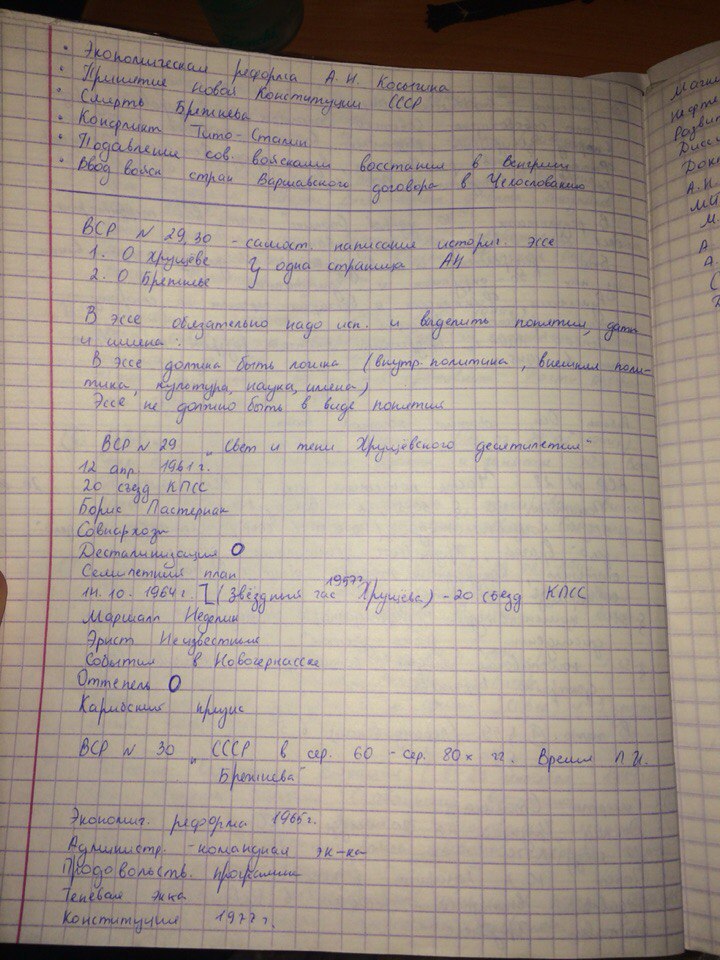 • Экономическая реформа А. Н. Косыгина
• Принятие новой Конституции СССР
• Смерть Брежнева
• Конфликт Тито-Сталин
• Подавление сов. войсками восстания в Венгрии
• Ввод войск стран Варшавского договора в Чехословакию
ВСР № 29, 30 - самост. написание историч. эссе
1. О Хрущёве
2. О Брежневе } одна страница А4
В эссе обязательно надо исп. и выделить понятия, даты
и имена.
В эссе должна быть логика (внутр. политика, внешняя поли-
тика, культура, наука, имена)
Эссе не должно быть в виде понятия
ВСР № 29 „Свет и тени Хрущёвского десятилетия"
12 апр. 1961 г.
20 съезд КПСС
Борис Пастернак
Совнархозы
Десталинизация О
Семилетний план
14.10.1964 г. (Звёздный час Хрущёва) - 20 съезд КПСС
Маршалл Неделин
Эрнст Неизвестный
События в Новочеркасске
Оттепель О
Карибский кризис
ВСР № 30 „СССР в сер. 60 - сер. 80х гг. Время Л. И.
Брежнева"
Экономич. реформа 1965 г.
Администр. - командная эк-ка
Продовольств. программа
Теневая эк-ка
Конституция 1977 г.
нефте
Развит
Дисси
А. Н.
М.
А
А.